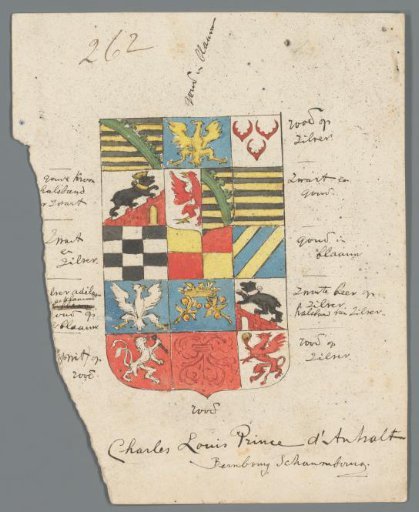 262
goud in blaauw
rood op
zilver
goude kroon
halsband
op zwart
zwart en
goud
zwart
en
zilver
goud in
blaauw
goud op
blaauw
zwarte beer op
zilver
halsband van zilver
wit op
rood
rood op
zilver
rood
Charles Louis Prince d'Anhalt
Bernbourg Schaumbourg.